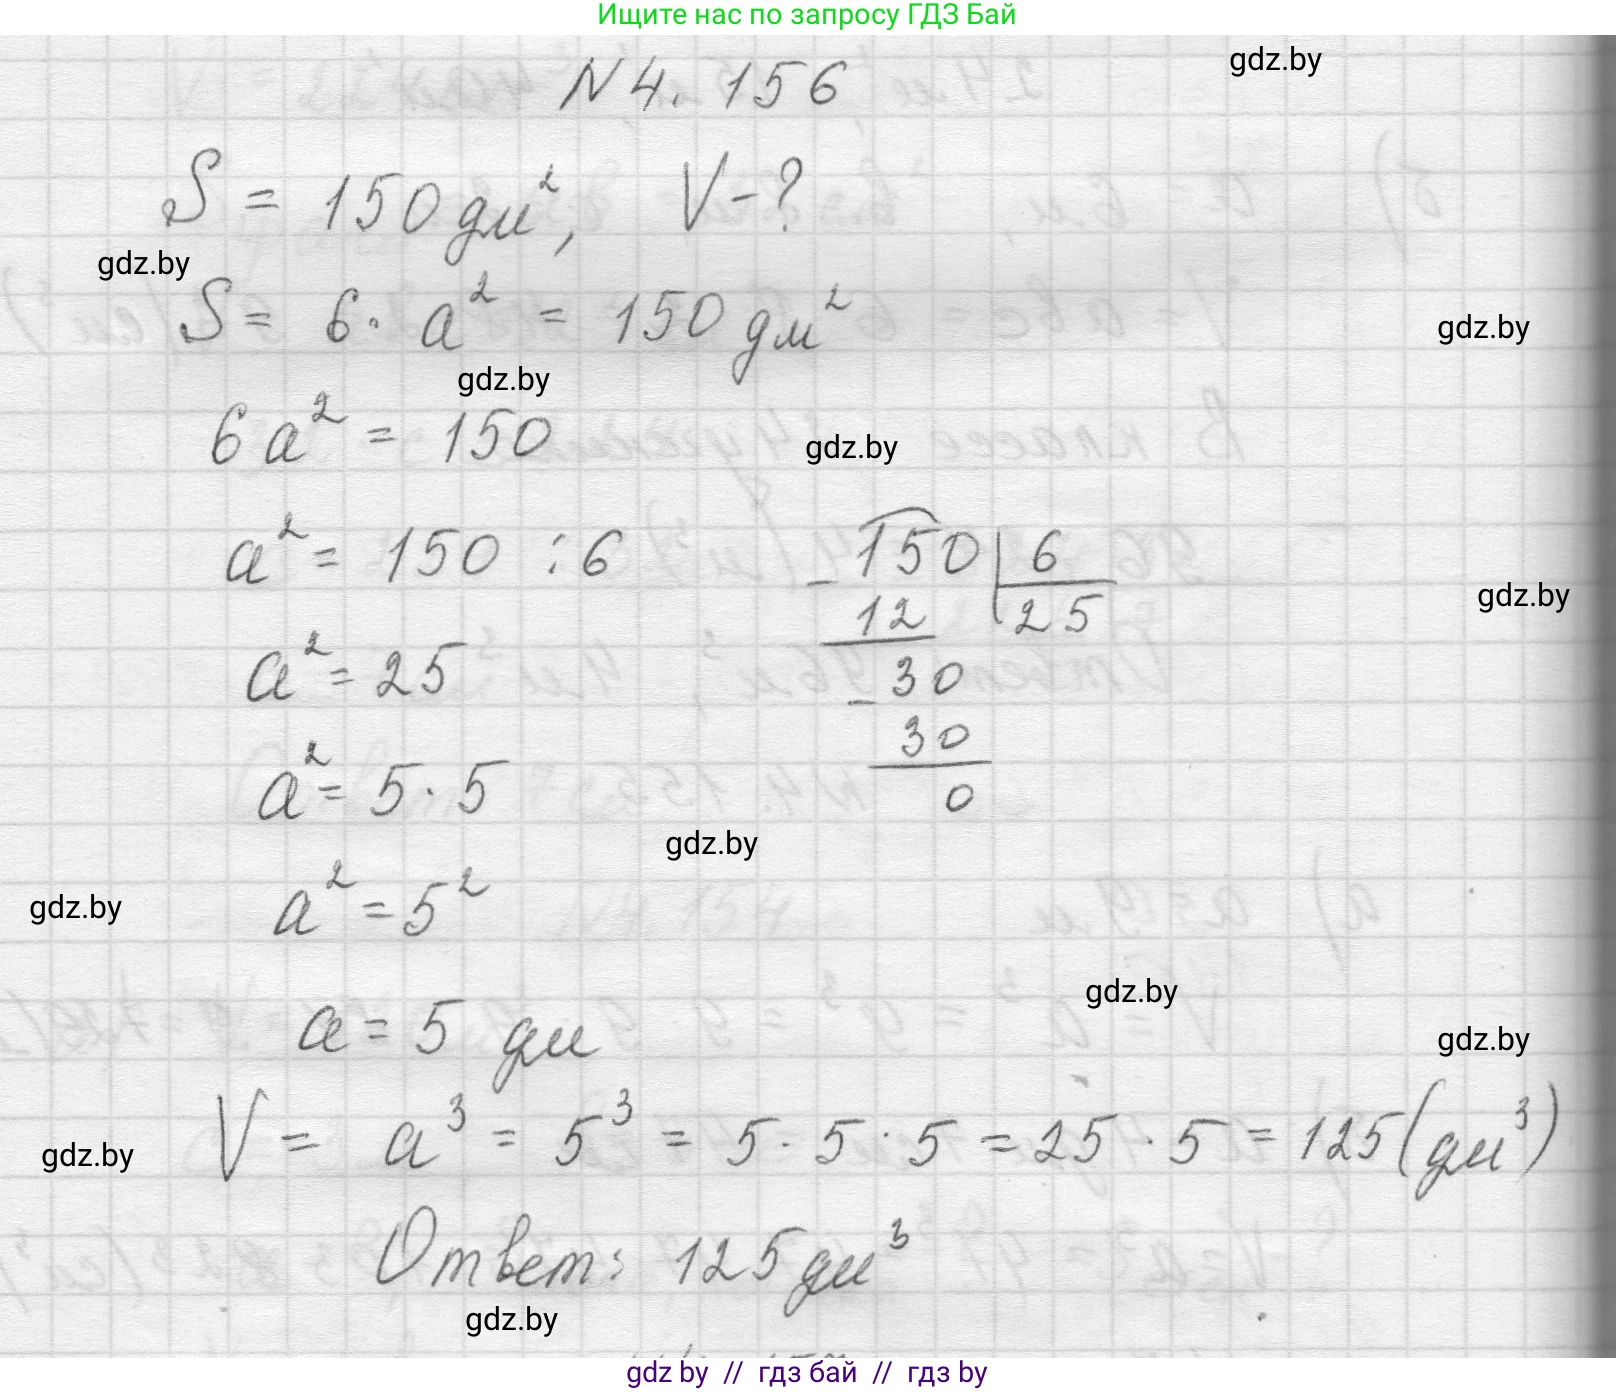 Ищите нас по запросу ГДЗ Бай
gdz.by
N 4. 156
S = 150 дм², V - ?
gdz.by
S = 6 · a² = 150 дм²
gdz.by
gdz.by
6a² = 150
gdz.by
a² = 150 : 6
150 | 6
- 12 | 25
gdz.by
a² = 25
- 30
30
0
a² = 5 · 5
gdz.by
a² = 5²
gdz.by
gdz.by
a = 5 дм
gdz.by
V = a³ = 5³ = 5 · 5 · 5 = 25 · 5 = 125 (дм³)
gdz.by
Ответ: 125 дм³
gdz.by
gdz by // гдз бай // гдз by